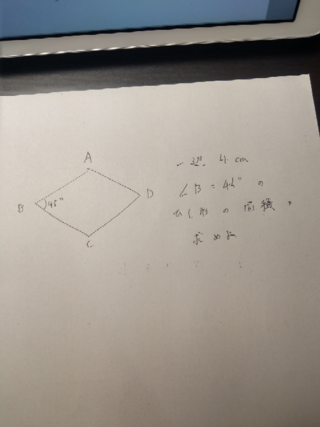 A
B 45° D
C
一辺 4 cm
∠B = 45° の
ひし形の面積を
求めよ